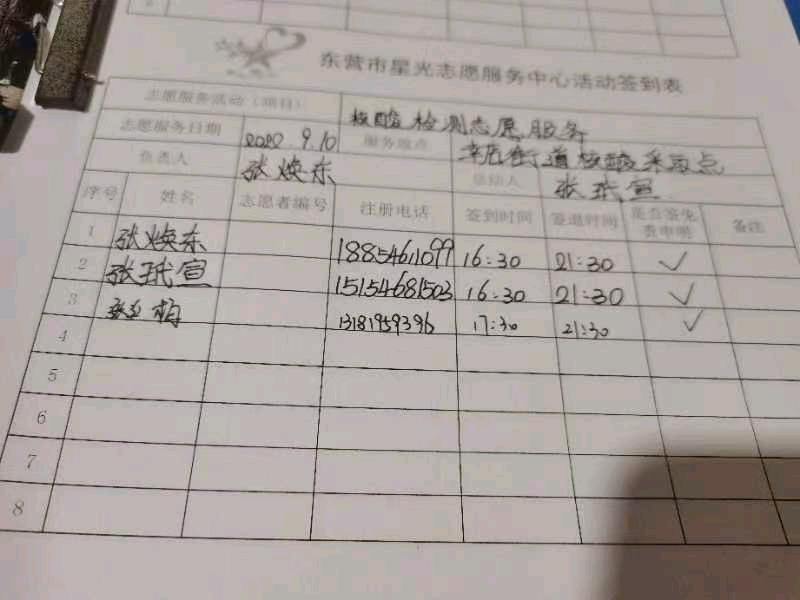 东营市星光志愿服务中心活动签到表
志愿服务活动（项目） 核酸检测志愿服务
志愿服务日期 2022.9.10 服务地点 辛店街道核酸采取点
负责人 张焕东 总结人 张珉宣
序号 姓名 志愿者编号 注册电话 签到时间 签退时间 是否签免费申明 备注
1 张焕东 18854611099 16:30 21:30 ✓
2 张珉宣 15154681503 16:30 21:30 ✓
3 13181959396 17:30 21:30 ✓
4
5
6
7
8